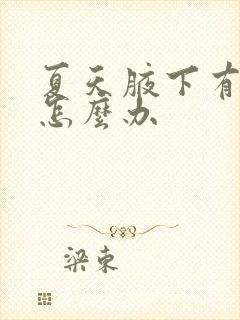 夏天腋下有
怎麼办
梁東